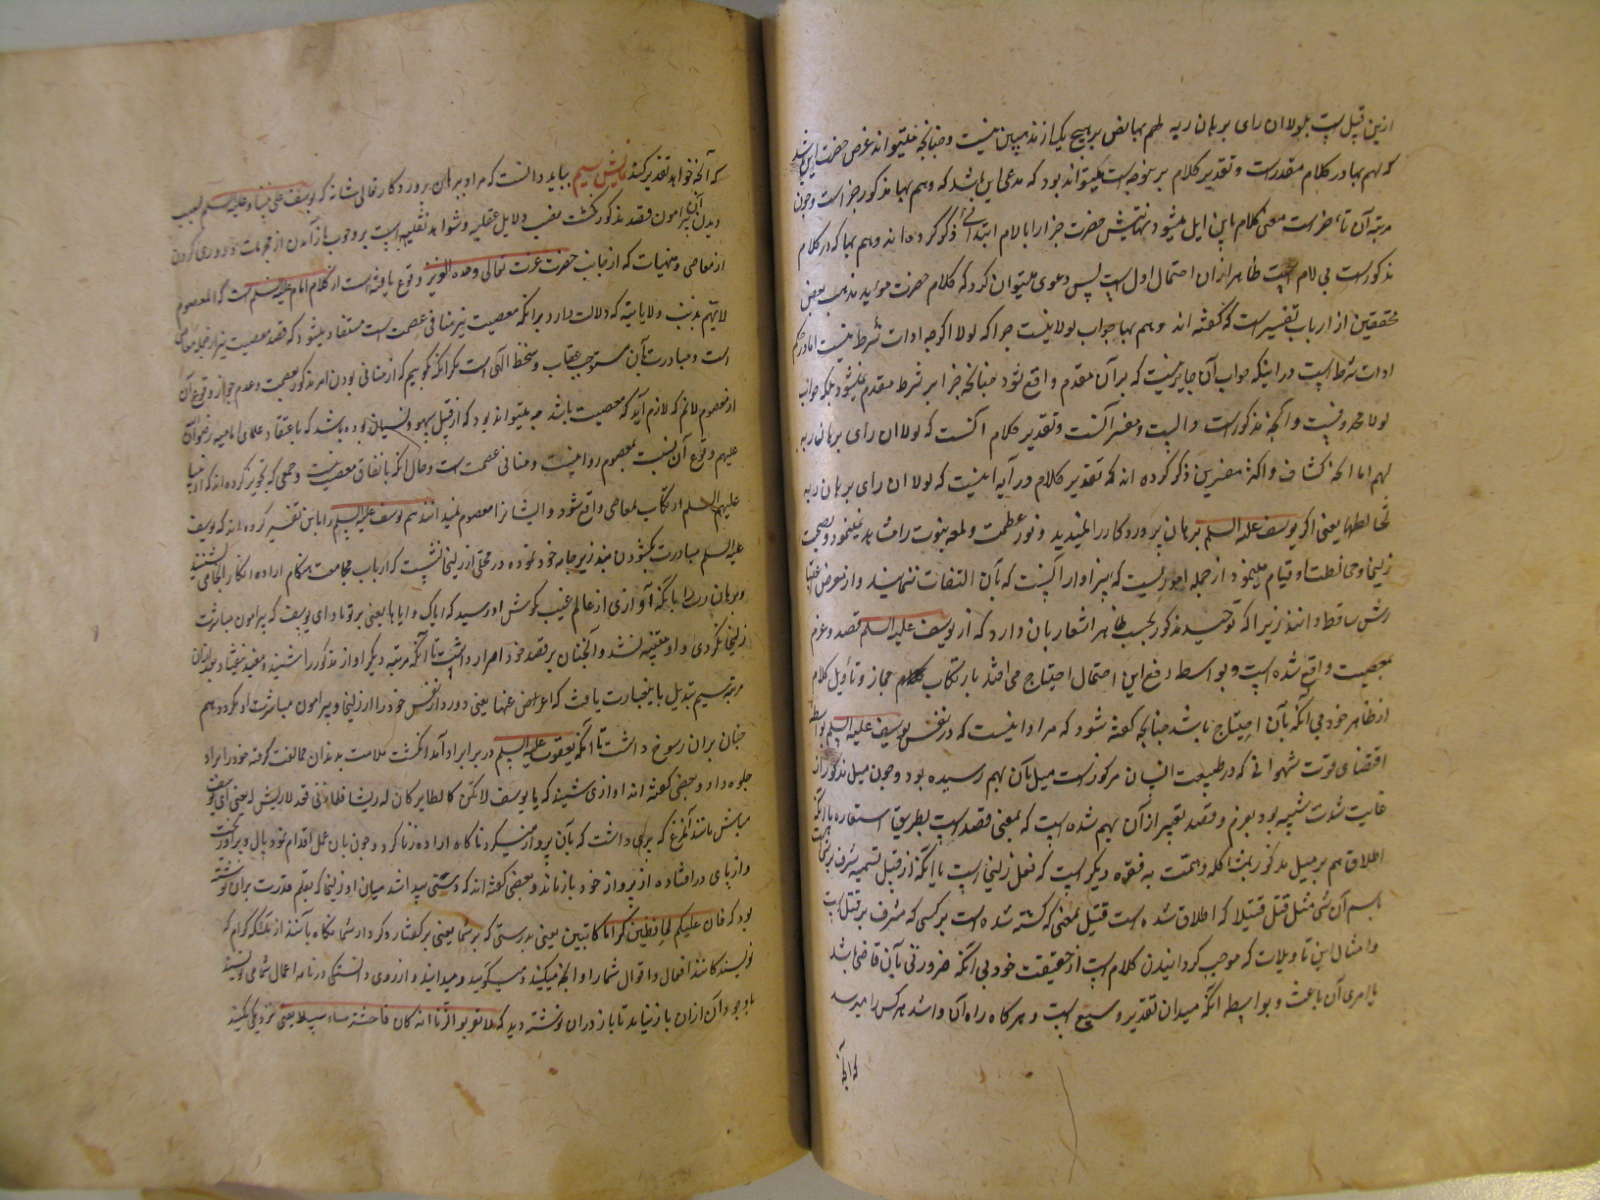 ازین قبیل است بلولا ان رای برهان ربه طهم بها بض بر هیچ یک از مذهبین نیست و چنانچه میتواند غرض حضرت این باشد
که لهم بها در کلام مقدر است و تقدیر کلام بر نبود که مدعی این باشد که وهم بها مذکور جزا است و چون
مرتبه آن تاخیر است معنی کلام باین ایل میشود نهایتش حضرت جزا را با لام ابتدائی ذکر کرده اند وهم بها که در کلام
مذکور است بی لام است ظاهر از آن احتمال اول است پس دعوی میتوان کرد که کلام حضرت موید مذهب بعض
محققین از ارباب تفسیر است که گفته اند وهم بها جواب لولا نیست چرا که لولا اگرچه ادات شرط نیست اما در حکم
ادات شرط است در اینکه جواب آن جایز نیست که بر آن مقدم واقع شود چنانچه جزا بر شرط مقدم نمیشود بلکه جواب
لولا محذوفست و آنچه مذکور است دال است و مفسر آنست و تقدیر کلام آنست که لولا ان رای برهان ربه
لهم اما آنچه کشاف و اکثر مفسرین ذکر کرده اند که تقدیر کلام در آیه اینست که لولا ان رای برهان ربه
لخالطها یعنی اگر یوسف علیه السلم برهان پروردکار را نمیدید و نور عظمت و لمعه نبوت را مشاهده نمینمود و بصحبت
زلیخا و مخالطت او قیام مینمود از جمله اموریست که سزاوار آنست که بآن التفات ننمایند و از معرض اعتبا
رش ساقط دانند زیرا که توجیه مذکور بحسب ظاهر اشعار بان دارد که از یوسف علیه السلم قصد و عزم
بمعصیت واقع شده است و بواسطه دفع این احتمال احتیاج می افتد بارتکاب مجاز و تاویل کلام
از ظاهر خود بی آنکه بآن احتیاج باشد چنانچه گفته شود که مراد اینست که در نفس یوسف علیه السلم بواسطه
اقتضای قوت شهوانی که در طبیعت انسان مرکوز است میل بآن بهم رسیده بود و چون میل مذکور از
غایت شدت شبیه بود بعزم و قصد تعبیر از آن بهم شده است که بمعنی قصد است بطریق استعاره یا آنکه
اطلاق هم بر میل مذکور مشاکله و همت به فقره دیگر است که فعل زلیخا است یا آنکه از قبیل تسمیه مشرف بر شی است
باسم آن شی مثل قتل قتیلا که اطلاق شده است قتیل بمعنی که کشته شده است بر کسی که مشرف بر قتل است
و امثال این تاویلات که موجب کردانیدن کلام است از حقیقت خود بی آنکه ضرورتی بآن قاضی باشد
یا امری آن باعث و بواسطه آنکه میدان تقدیر وسیع است و هر کاه راه آن وا شد هر کس را میرسد
که آنچه
که آنچه خواهد تقدیر کند نمایش سیم بباید دانست که مراد ببرهان پروردکار تعالی شانه که یوسف علی نبینا و علیه السلم بسبب
دیدن آن پیرامون قصد مذکور نکشت نصب دلایل عقلیه و شواهد نقلیه است بر وجوب باز آمدن از محرمات و دوری کردن
از معاصی و منهیات که از جانب حضرت عزت تعالی وحده العزیز وقوع یافته است از کلام امام علیه السلم است که المعصوم
لا یهم بذنب ولا یاتیه که دلالت دارد برانکه معصیت نیز منافی عصمت است مستفاد میشود که قصد معصیت نیز از جمله معاصی
است و مبادرت بآن مستوجب عقاب و سخط الهی است مکر آنکه کوییم که از منافی بودن امر مذکور بعصمت و عدم جواز وقوع آن
از معصوم لازم که لازم آید که معصیت باشد چه میتواند بود که از قبیل سهو و نسیان بوده باشد که باعتقاد علمای امامیه رضوان
علیهم وقوع آن نسبت بمعصوم روا نیست و منافی عصمت است و حال آنکه باتفاق معصیت نیست و جمعی که تجویز کرده اند که انبیا
علیهم السلم ارتکاب بمعاصی واقع شود و ایشانرا معصوم نمیدانند هم یوسف علیه السلم را باین تفسیر کرده اند که یوسف
علیه السلم مبادرت بکشودن بند زیر جامه خود نموده در محلی از زلیخا نشست که ارباب مجامعت هنکام اراده انکار الحامی نشینند
و برهان رب را بآنکه آوازی از عالم غیب بکوش او رسید که ایاک و ایاها یعنی بر تو باد ای یوسف که پیرامون مباشرت
زلیخا نکردی و او متنبه نشد و آنچنان بر قصد خود اصرار داشت تا آنکه مرتبه دیکر آواز مذکور را شنید و مفید نیفتاد
مرتبه سیم تبدیل باینعبارت یافت که اعرض عنها یعنی دور دار نفس خود را از زلیخا و پیرامون مباشرت او نکرد و هم
چنان بران رسوخ داشت تا آنکه یعقوب علیه السلم در برابر او آمد انکشت ملامت بدندان ممانعت کرفته خود را براو
جلوه داد و بعضی کفته اند آوازی شنید که یا یوسف لا تکن کالطایر کان له ریشا فلما زنی قعد لا ریش له یعنی ای یوسف
مباش مانند آنمرغ که پری داشت که بآن پرواز میکرد ناکاه اراده زنا کرد و چون بان عمل اقدام نمود بال و پر او ریخت
و از پای در افتاده از پرواز خود باز ماند و بعضی کفته اند که دستی پیدا شد میان او و زلیخا که بقلم قدرت بران نوشته
بود که فان علیکم لحافظین کراما کاتبین یعنی بدرستی که بر شما یعنی بر کفتار و کردار شما نکاه بانند از ملئکه کرام که
نویسندکانند افعال و اقوال شما را و آنچه میکنید و میکویید و میدانید و از روی دانستکی در نامه اعمال شما می نویسند
با وجود آن ازان باز نیامد تا باز دران نوشته دید که لا تقربوا الزنا انه کان فاحشة و ساء سبیلا یعنی نزدیکی مکنید